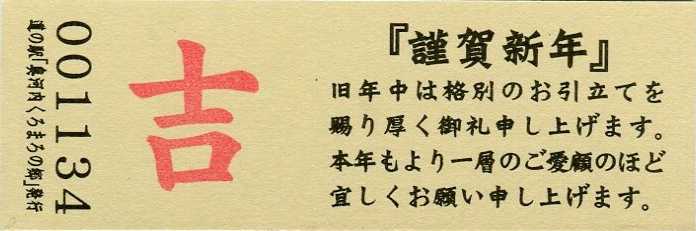 『謹賀新年』
旧年中は格別のお引立てを
賜り厚く御礼申し上げます。
本年もより一層のご愛顧のほど
宜しくお願い申し上げます。
吉
001134
道の駅「奥河内くろまろの郷」発行